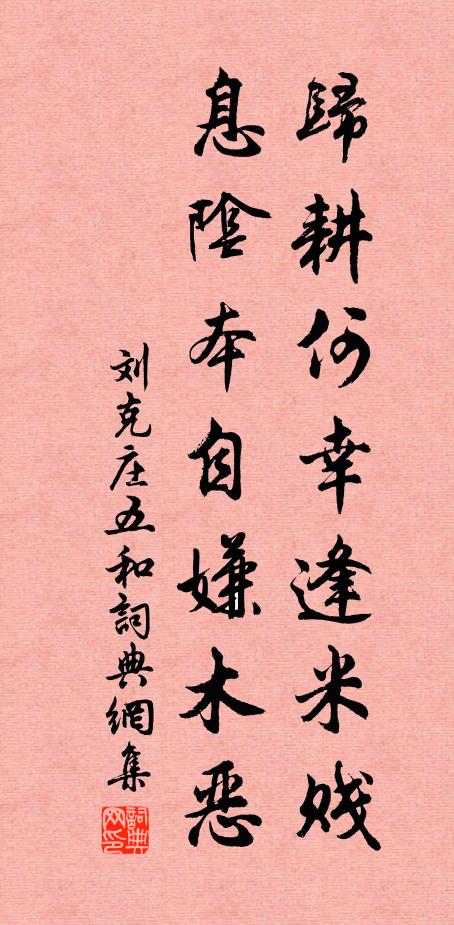 歸耕何幸逢米賤
息陰本自嫌木惡
刘克庄五和詞典網集
詞典网印